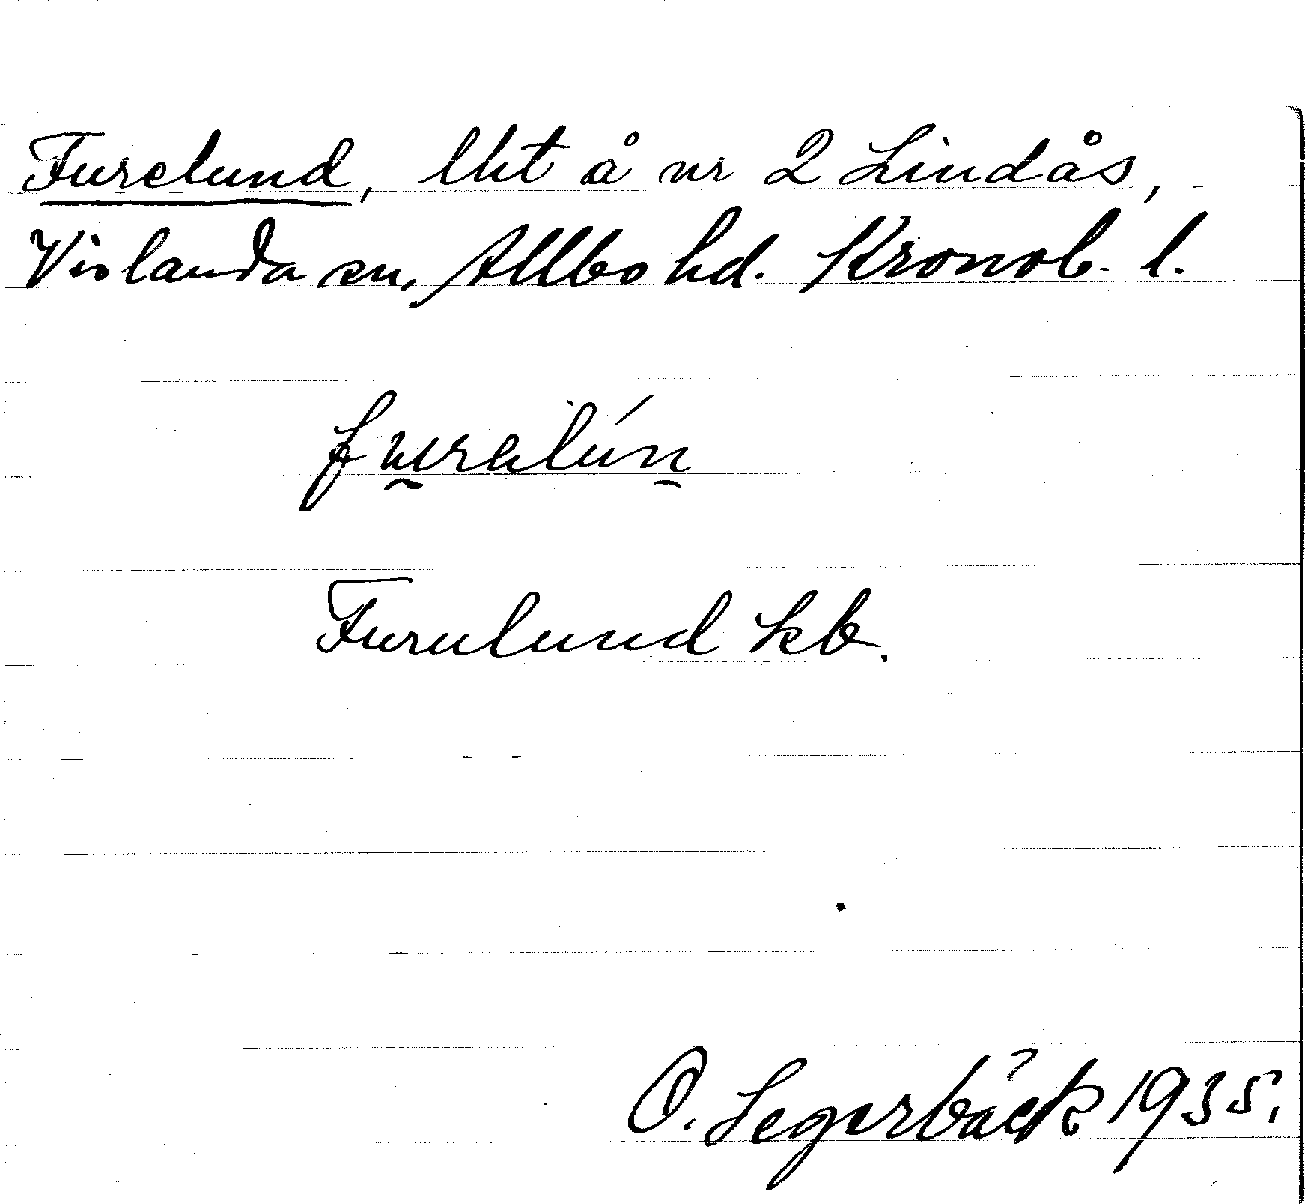 Furelund, lht å nr 2 Lindås,
Vislanda sn, Allbo hd. Kronob. l.
furalún
Furulund kb.
O. Segerbäck 1935.